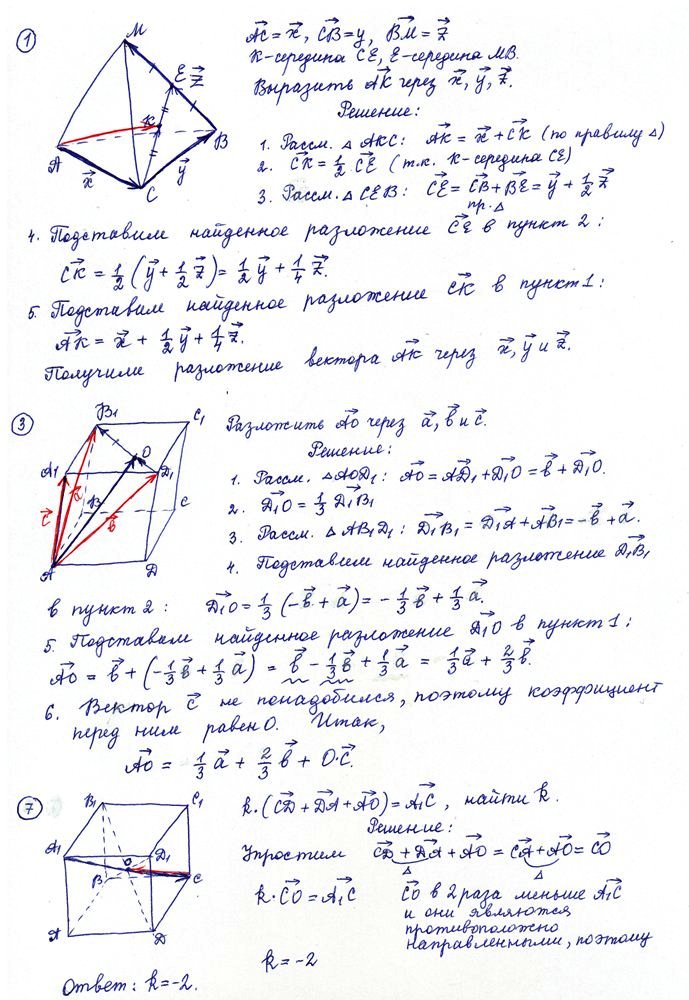 1
M
E
K
A
B
C
x⃗
y⃗
z⃗
A⃗C⃗ = x⃗, C⃗B⃗ = y, B⃗M⃗ = z⃗
K-середина CE, E-середина MB.
Выразить A⃗K⃗ через x⃗, y⃗, z⃗.
Решение:
1. Рассм. △ AKC: A⃗K⃗ = x⃗ + C⃗K⃗ (по правилу △)
2. C⃗K⃗ = 1/2 C⃗E⃗ (т.к. K-середина CE)
3. Рассм. △ CEB: C⃗E⃗ = C⃗B⃗ + B⃗E⃗ = y⃗ + 1/2 z⃗
пр. △
4. Подставим найденное разложение C⃗E⃗ в пункт 2:
C⃗K⃗ = 1/2 (y⃗ + 1/2 z⃗) = 1/2 y⃗ + 1/4 z⃗.
5. Подставим найденное разложение C⃗K⃗ в пункт 1:
A⃗K⃗ = x⃗ + 1/2 y⃗ + 1/4 z⃗.
Получили разложение вектора A⃗K⃗ через x⃗, y⃗ и z⃗.
3
B₁
C₁
O
A₁
D₁
B
C
A
D
a⃗
b⃗
c⃗
Разложить A⃗O⃗ через a⃗, b⃗ и c⃗.
Решение:
1. Рассм. △AOD₁: A⃗O⃗ = A⃗D⃗₁ + D⃗₁O⃗ = b⃗ + D⃗₁O⃗.
2. D⃗₁O⃗ = 1/3 D⃗₁B⃗₁
3. Рассм. △ AB₁D₁: D⃗₁B⃗₁ = D⃗₁A⃗ + A⃗B⃗₁ = -b⃗ + a⃗.
4. Подставим найденное разложение D⃗₁B⃗₁
в пункт 2: D⃗₁O⃗ = 1/3 (-b⃗ + a⃗) = -1/3 b⃗ + 1/3 a⃗.
5. Подставим найденное разложение D⃗₁O⃗ в пункт 1:
A⃗O⃗ = b⃗ + (-1/3 b⃗ + 1/3 a⃗) = b⃗ - 1/3 b⃗ + 1/3 a⃗ = 1/3 a⃗ + 2/3 b⃗.
6. Вектор c⃗ не понадобился, поэтому коэффициент
перед ним равен 0. Итак,
A⃗O⃗ = 1/3 a⃗ + 2/3 b⃗ + 0·c⃗.
7
B₁
C₁
A₁
D₁
O
B
C
A
D
k·(C⃗D⃗ + D⃗A⃗ + A⃗O⃗) = A⃗₁C⃗, найти k.
Решение:
Упростим C⃗D⃗ + D⃗A⃗ + A⃗O⃗ = C⃗A⃗ + A⃗O⃗ = C⃗O⃗
△ △
k·C⃗O⃗ = A⃗₁C⃗
C⃗O⃗ в 2 раза меньше A⃗₁C⃗
и они являются
противоположно
направленными, поэтому
k = -2
Ответ: k = -2.